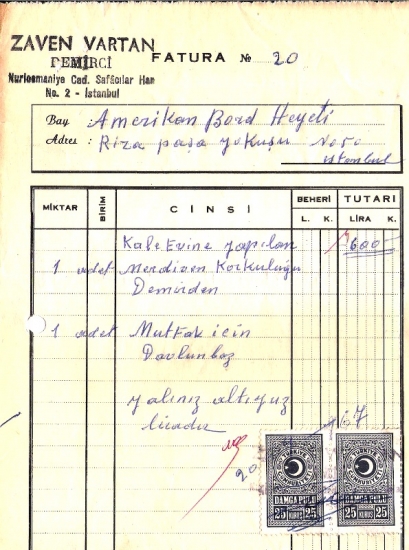 ZAVEN VARTAN
DEMİRCİ
Nuriosmaniye Cad. Safâcılar Han
No. 2 - İstanbul
FATURA № 20
Bay : Amerikan Bord Heyeti
Adres : Riza paşa yokuşu No 50
istanbul
MİKTAR BİRİM CİNSİ BEHERİ TUTARI
L. K. LİRA K.
Kale Evine yapılan 600
1 adet Merdiven Korkuluğu
Demirden
1 adet Mutfak icin
Davlunbaz
yalınız altıyuz
liradır
20 67
TÜRKİYE CUMHURİYETİ TÜRKİYE CUMHURİYETİ
DAMGA PULU DAMGA PULU
25 KURUŞ 25 25 KURUŞ 25